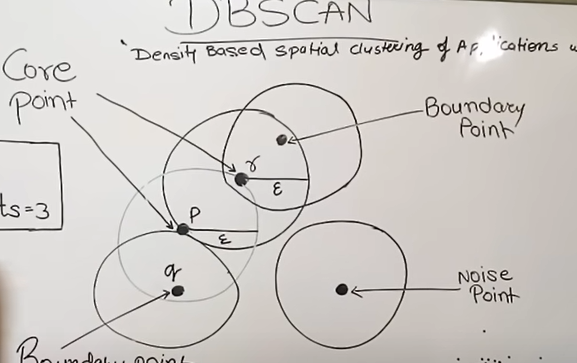 DBSCAN
"Density Based spatial clustering of
Core
point
Boundary
Point
ts=3
r
ε
P
ε
q
Noise
Point
Boundary point